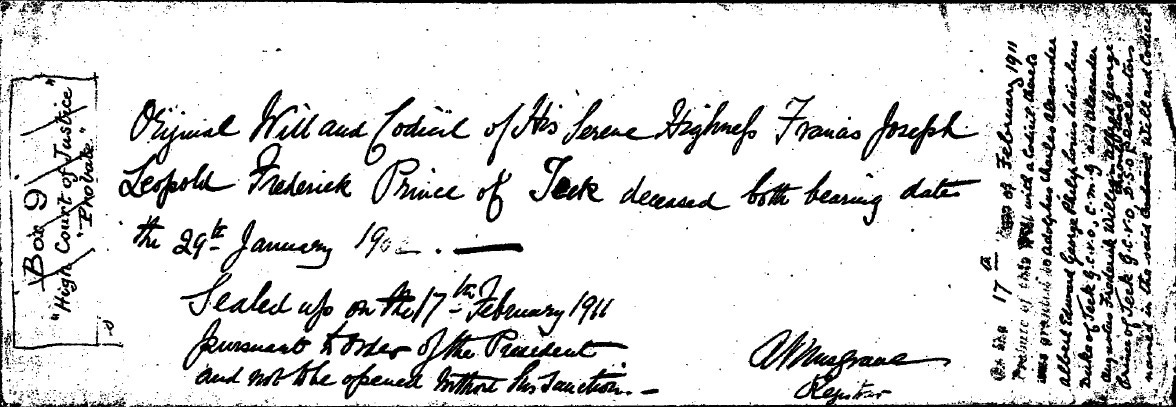 Box 9
"High Court of Justice"
"Probate"
Original Will and Codicil of His Serene Highness Francis Joseph
Leopold Frederick Prince of Teck deceased both bearing date
the 29th January 190
Sealed up on the 17th February 1911
pursuant to order of the President
and not to be opened without his Sanction. —
Musgrave
Registrar
On the 17th of February 1911
Probate of this Will with a Codicil thereto
was granted to Adolphus Charles Alexander
Albert Edward George Philip Louis Ladislaus
Duke of Teck G.C.V.O, C.M.G and Alexander
Augustus Frederick William Alfred George
Prince of Teck G.C.V.O, D.S.O executors
named in the said Will and Codicil